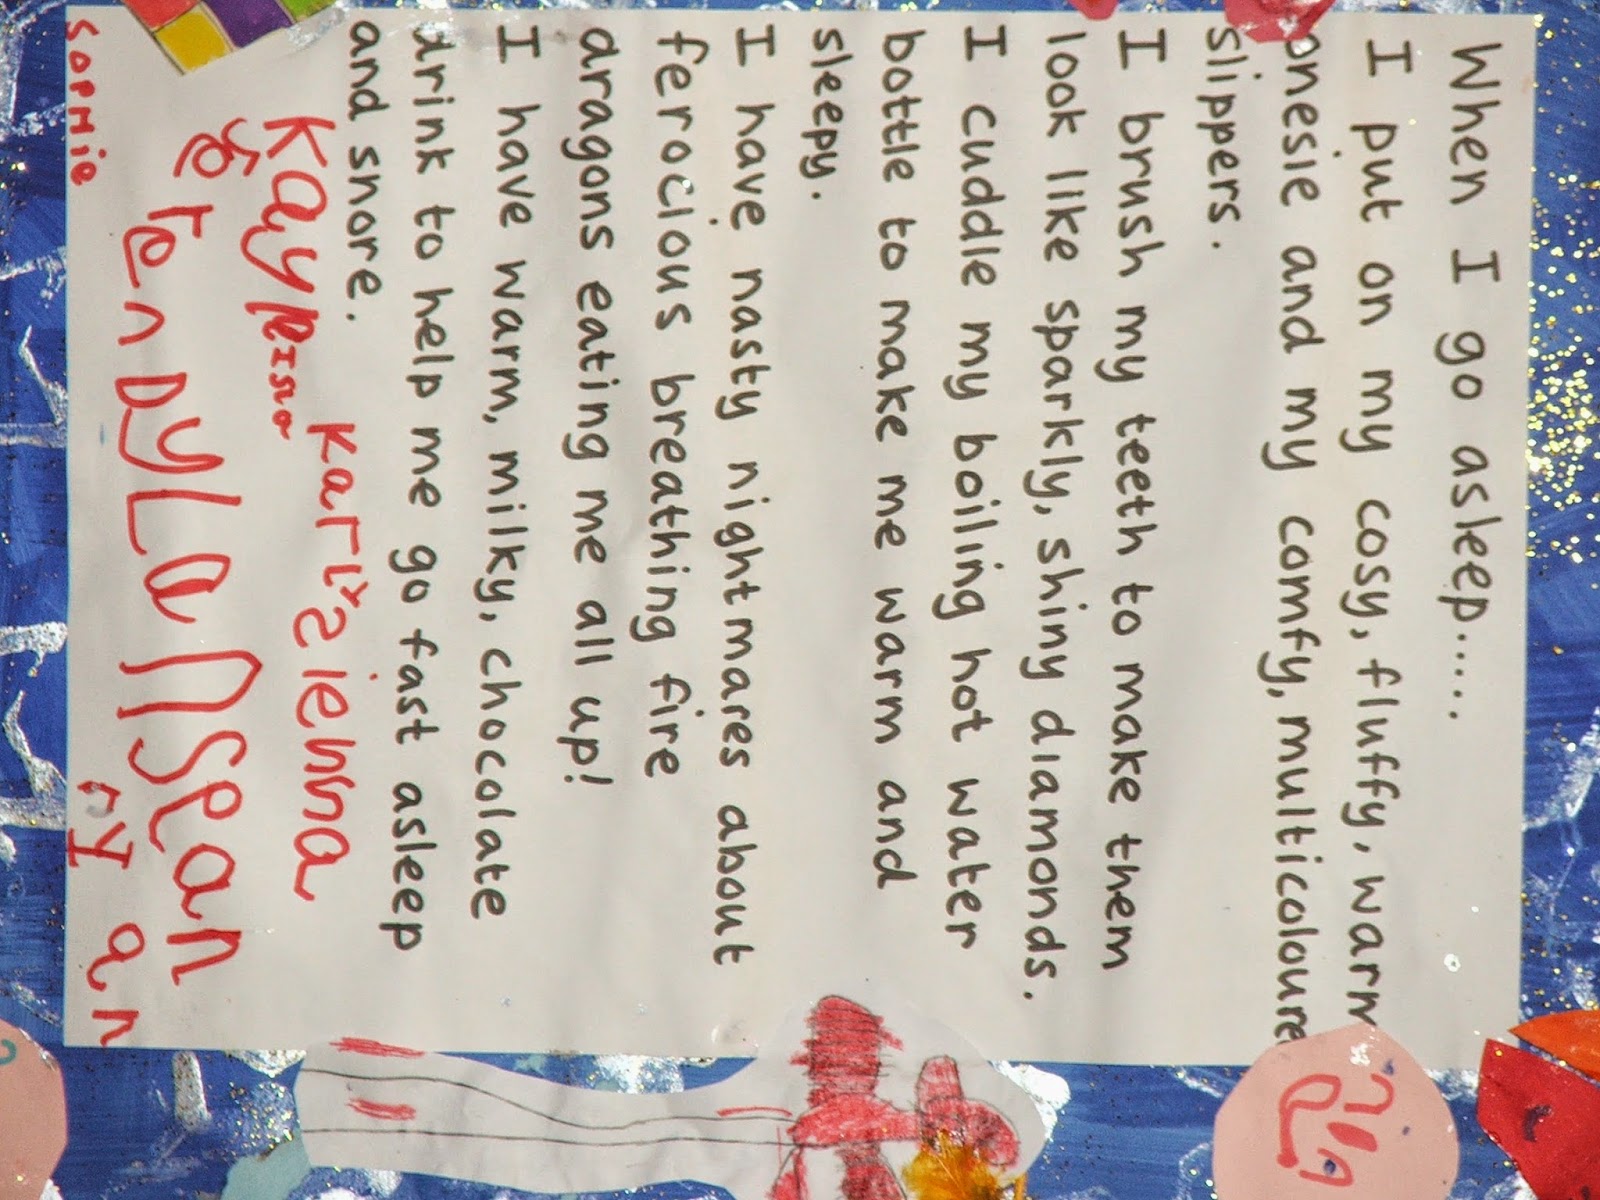 When I go asleep.....
I put on my cosy, fluffy, warm
onesie and my comfy, multicoloure
slippers.
I brush my teeth to make them
look like sparkly, shiny diamonds.
I cuddle my boiling hot water
bottle to make me warm and
sleepy.
I have nasty nightmares about
ferocious breathing fire
dragons eating me all up!
I have warm, milky, chocolate
drink to help me go fast asleep
and snore.
Karl sienna
Dylan Sean
ryan
SOPHie